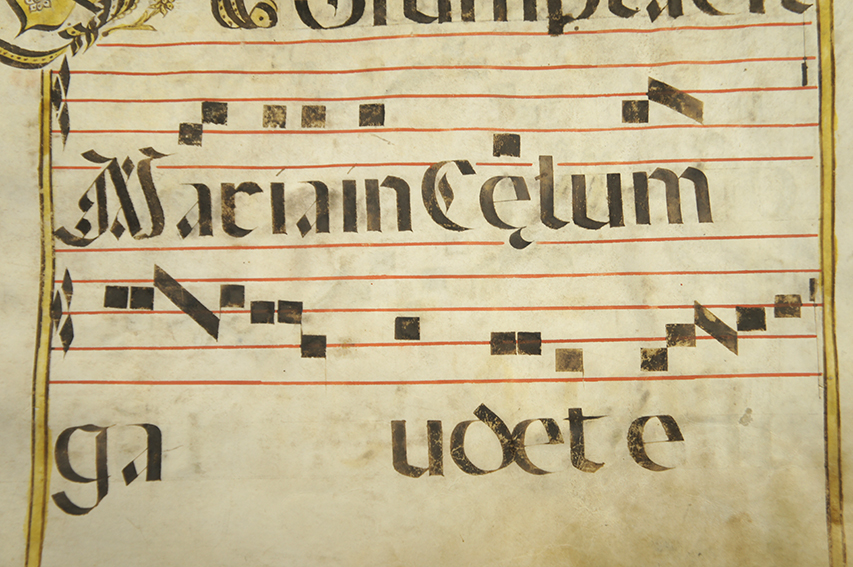 Maria in Cęlum
ga udete e